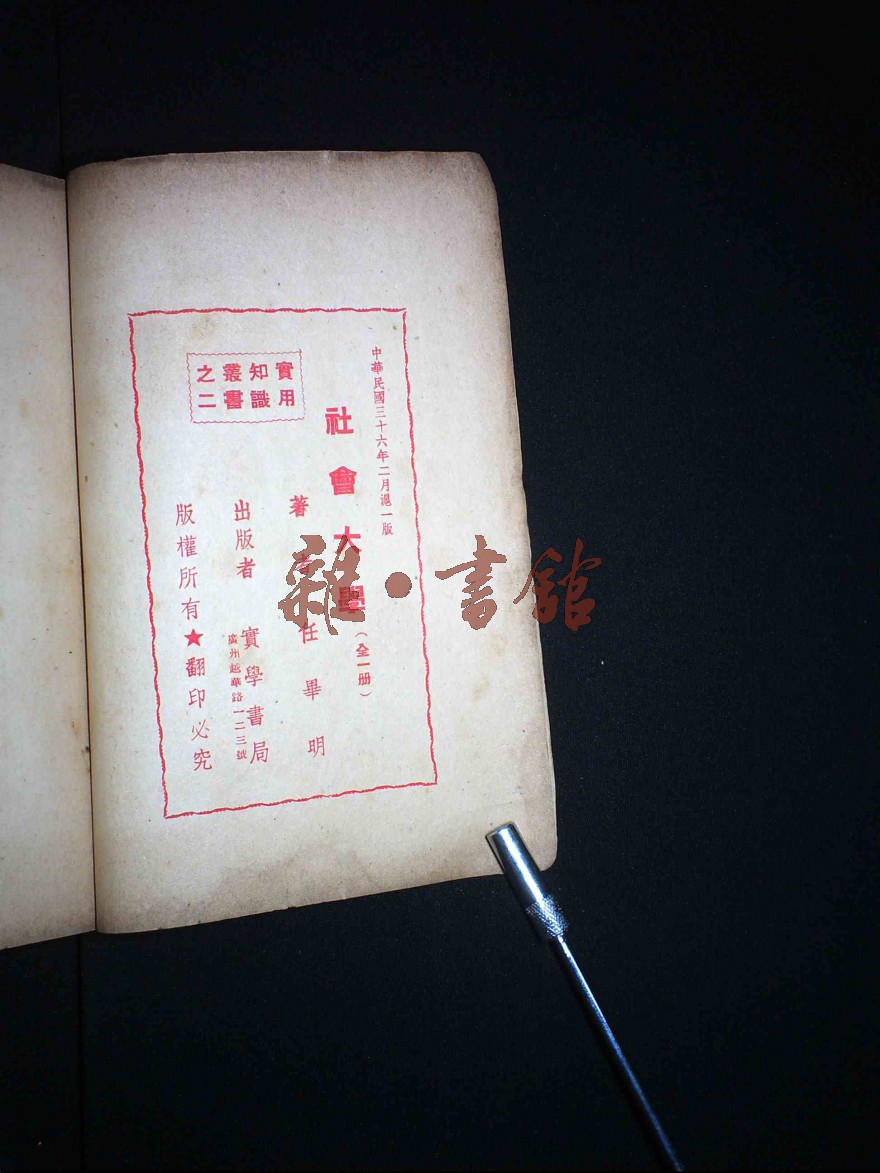 中華民國三十六年二月滬一版
社會大學（全一册）
著者 任畢明
實用
知識
叢書
之二
出版者 實學書局
廣州越華路一二三號
版權所有★翻印必究
雜·書館